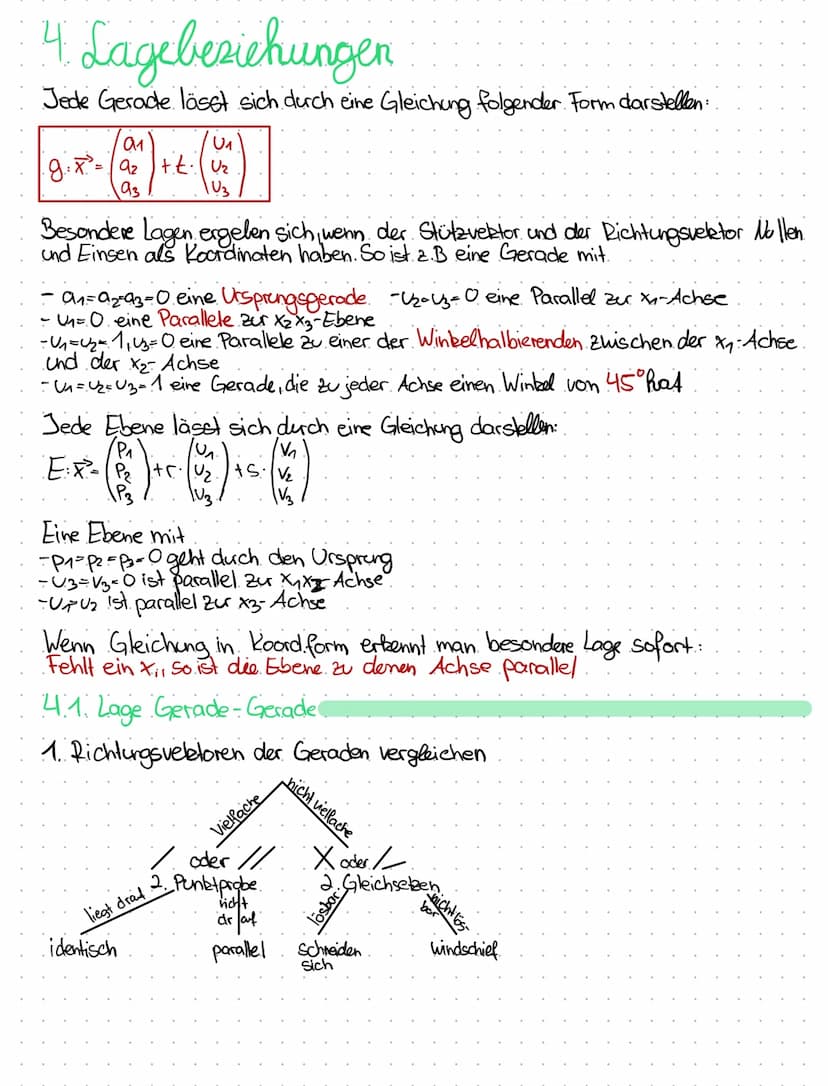 4. Lagebeziehungen
Jede Gerade lässt sich durch eine Gleichung folgender Form darstellen:
g: x⃗ = (a1 a2 a3) + t · (u1 u2 u3)
Besondere Lagen ergeben sich, wenn der Stützvektor und der Richtungsvektor Nullen
und Einsen als Koordinaten haben. So ist z.B eine Gerade mit
- a1=a2=a3=0 eine Ursprungsgerade -u2=u3=0 eine Parallel zur x1-Achse
- u1=0 eine Parallele zur x2x3-Ebene
- u1=u2=1, u3=0 eine Parallele zu einer der Winkelhalbierenden zwischen der x1-Achse
und der x2-Achse
- u1=u2=u3=1 eine Gerade, die zu jeder Achse einen Winkel von 45° hat
Jede Ebene lässt sich durch eine Gleichung darstellen:
E: x⃗ = (p1 p2 p3) + r · (u1 u2 u3) + s · (v1 v2 v3)
Eine Ebene mit
- p1=p2=p3=0 geht duch den Ursprung
- u3=v3=0 ist parallel zur x1x2-Achse
- u1=u2 ist parallel zur x3-Achse
Wenn Gleichung in Koord.form erkennt man besondere Lage sofort:
Fehlt ein xi, so ist die Ebene zu denen Achse parallel
4.1. Lage Gerade-Gerade
1. Richtungsvektoren der Geraden vergleichen
Vielfache nicht vielfache
oder oder
2. Punktprobe 2. Gleichsetzen
liegt drauf nicht drauf lösbar nicht lösbar
identisch parallel schneiden sich windschief